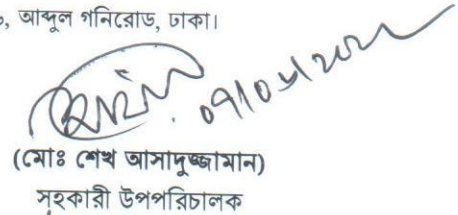 , আব্দুল গনিরোড, ঢাকা।
(মোঃ শেখ আসাদুজ্জামান)
সহকারী উপপরিচালক